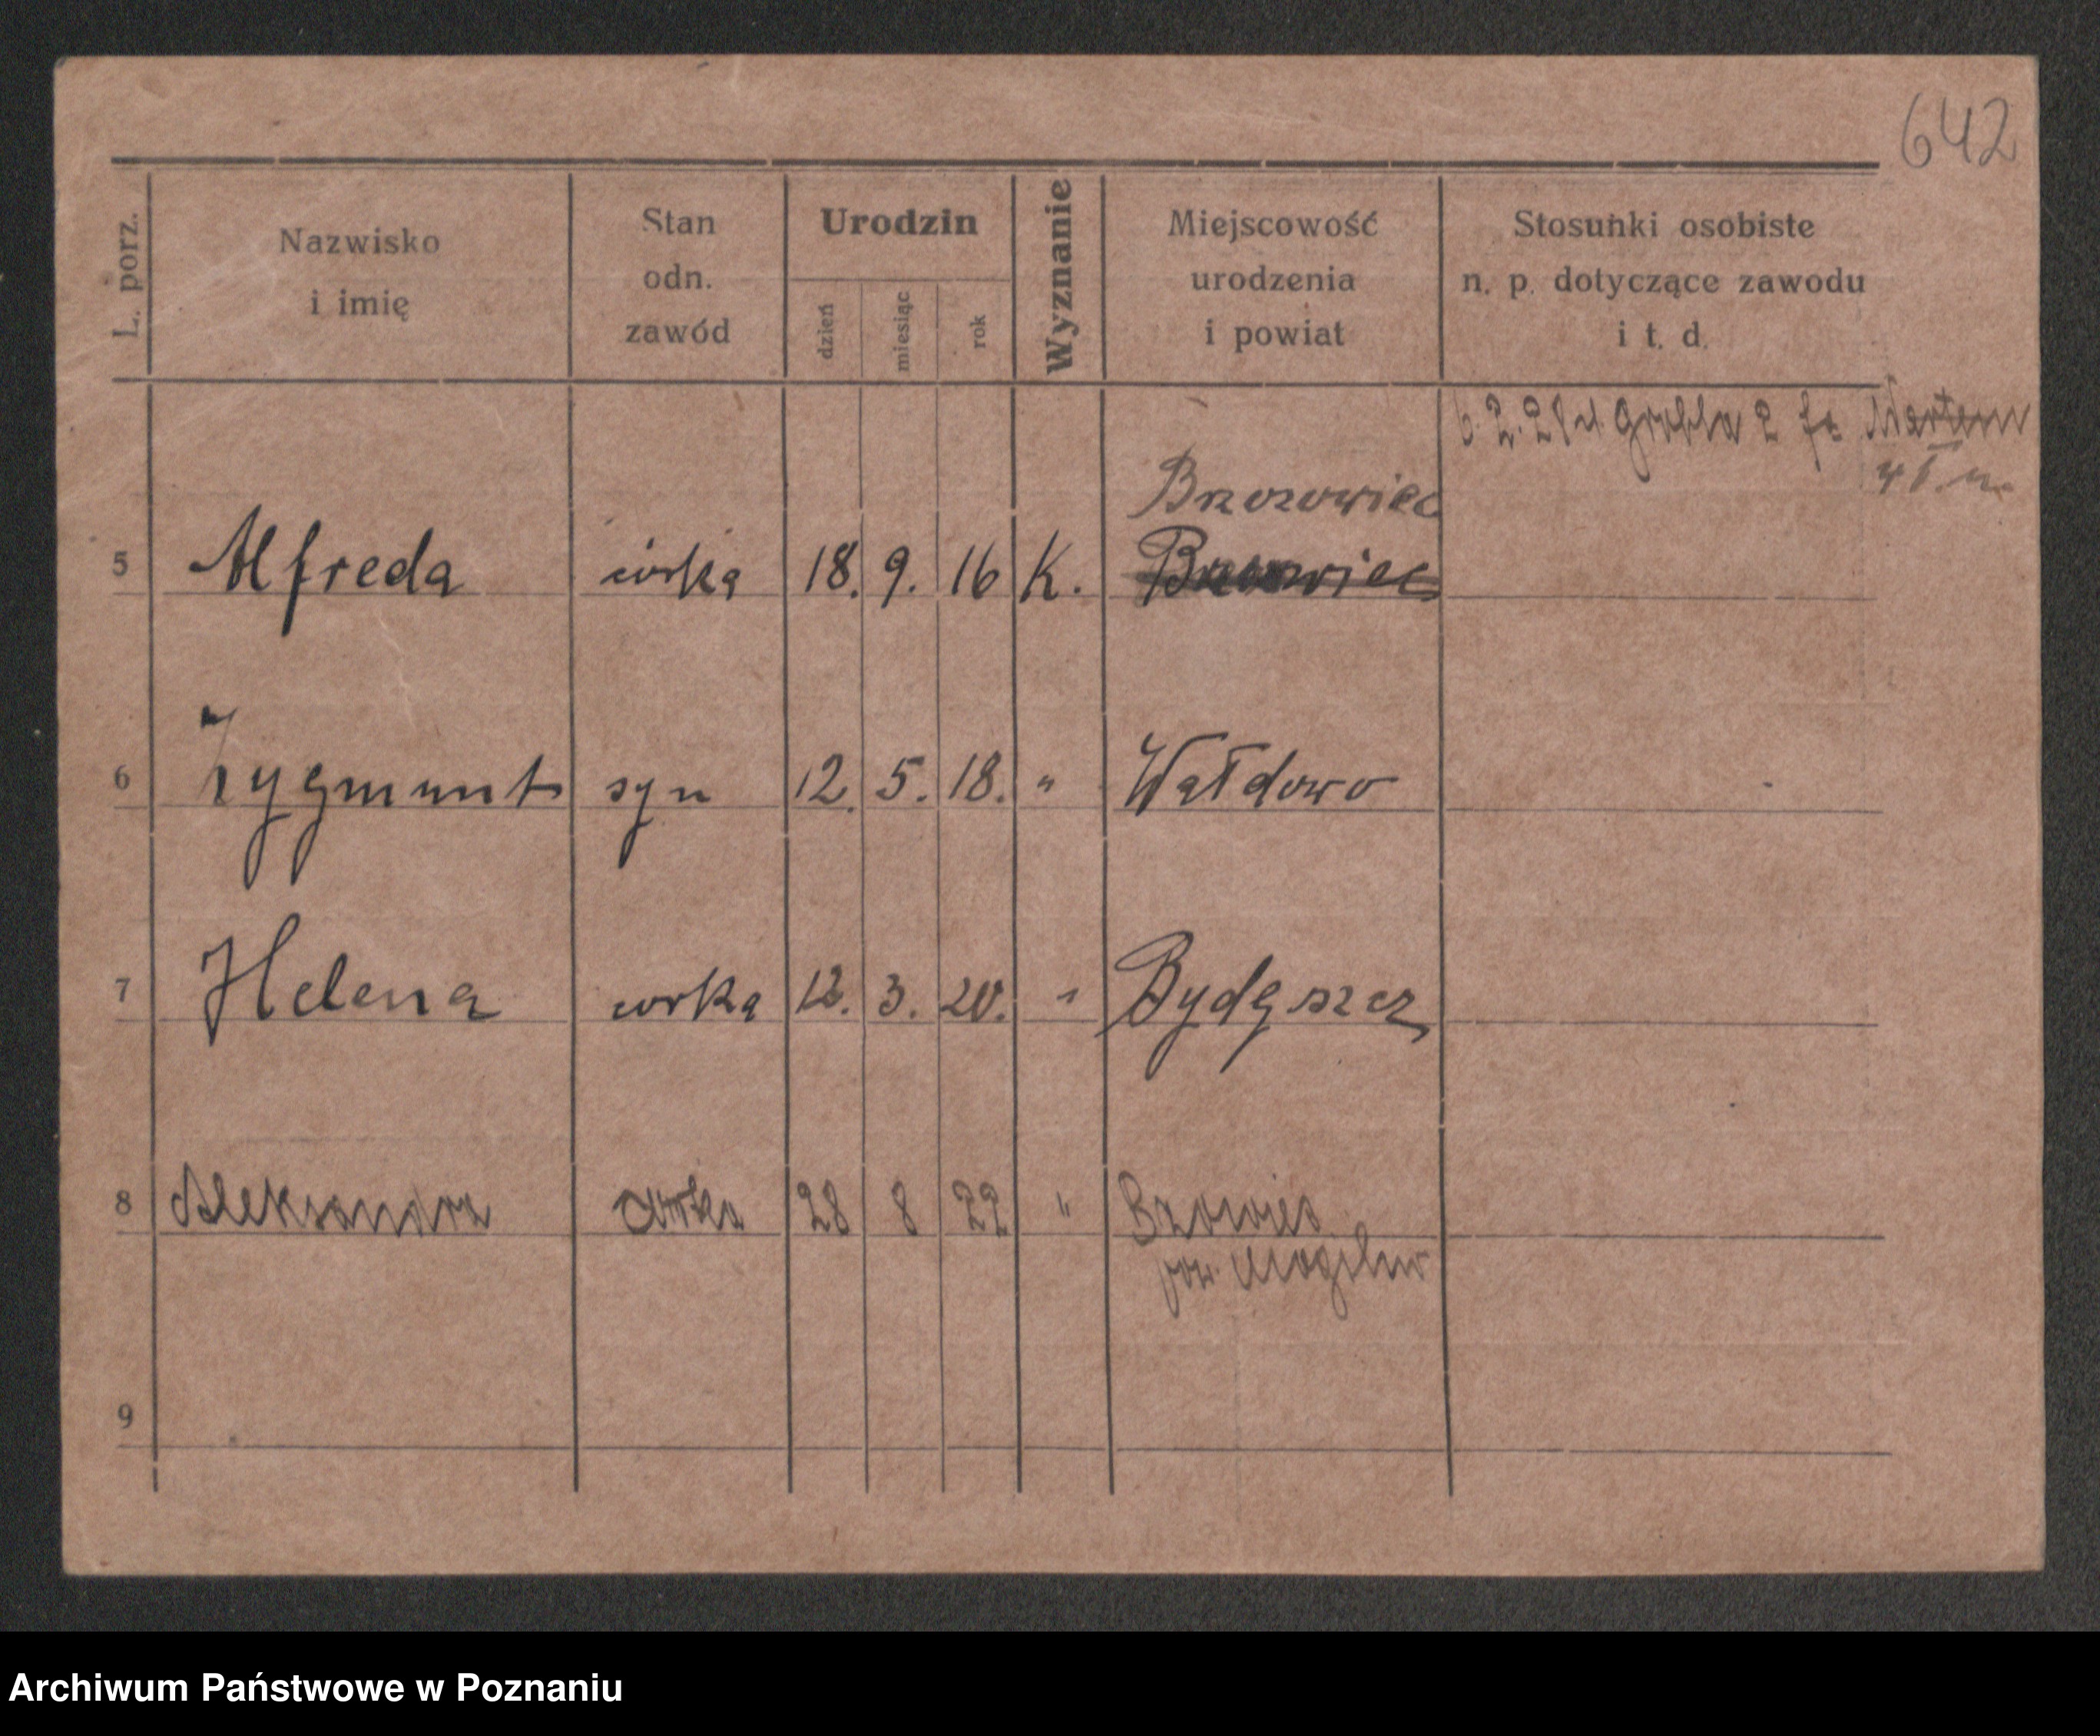 642
L. porz.
Nazwisko
i imię
Stan
odn.
zawód
Urodzin
dzień
miesiąc
rok
Wyznanie
Miejscowość
urodzenia
i powiat
Stosunki osobiste
n. p. dotyczące zawodu
i t. d.
2. Grobla 2
Brzozowiec
5 Alfreda córka 18. 9. 16 K.
6 Zygmunt syn 12. 5. 18. " Wałdowo
7 Helena corka 12. 3. 20. " Bydgszcz
8 Aleksandra córka 28 8 22 "
pow. Mogilno
9
Archiwum Państwowe w Poznaniu